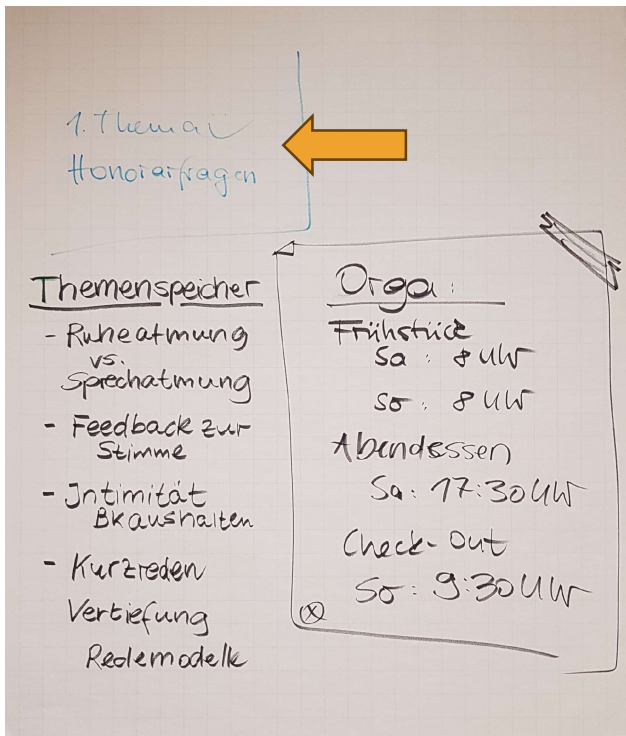 1. Thema
Honorarfragen
Themenspeicher
- Ruheatmung
vs.
Sprechatmung
- Feedback zur
Stimme
- Intimität
BK aushalten
- Kurzreden
Vertiefung
Redemodelle
Orga:
Frühstück
Sa: 8 Uhr
So: 8 Uhr
Abendessen
Sa: 17:30 Uhr
Check-Out
So: 9:30 Uhr